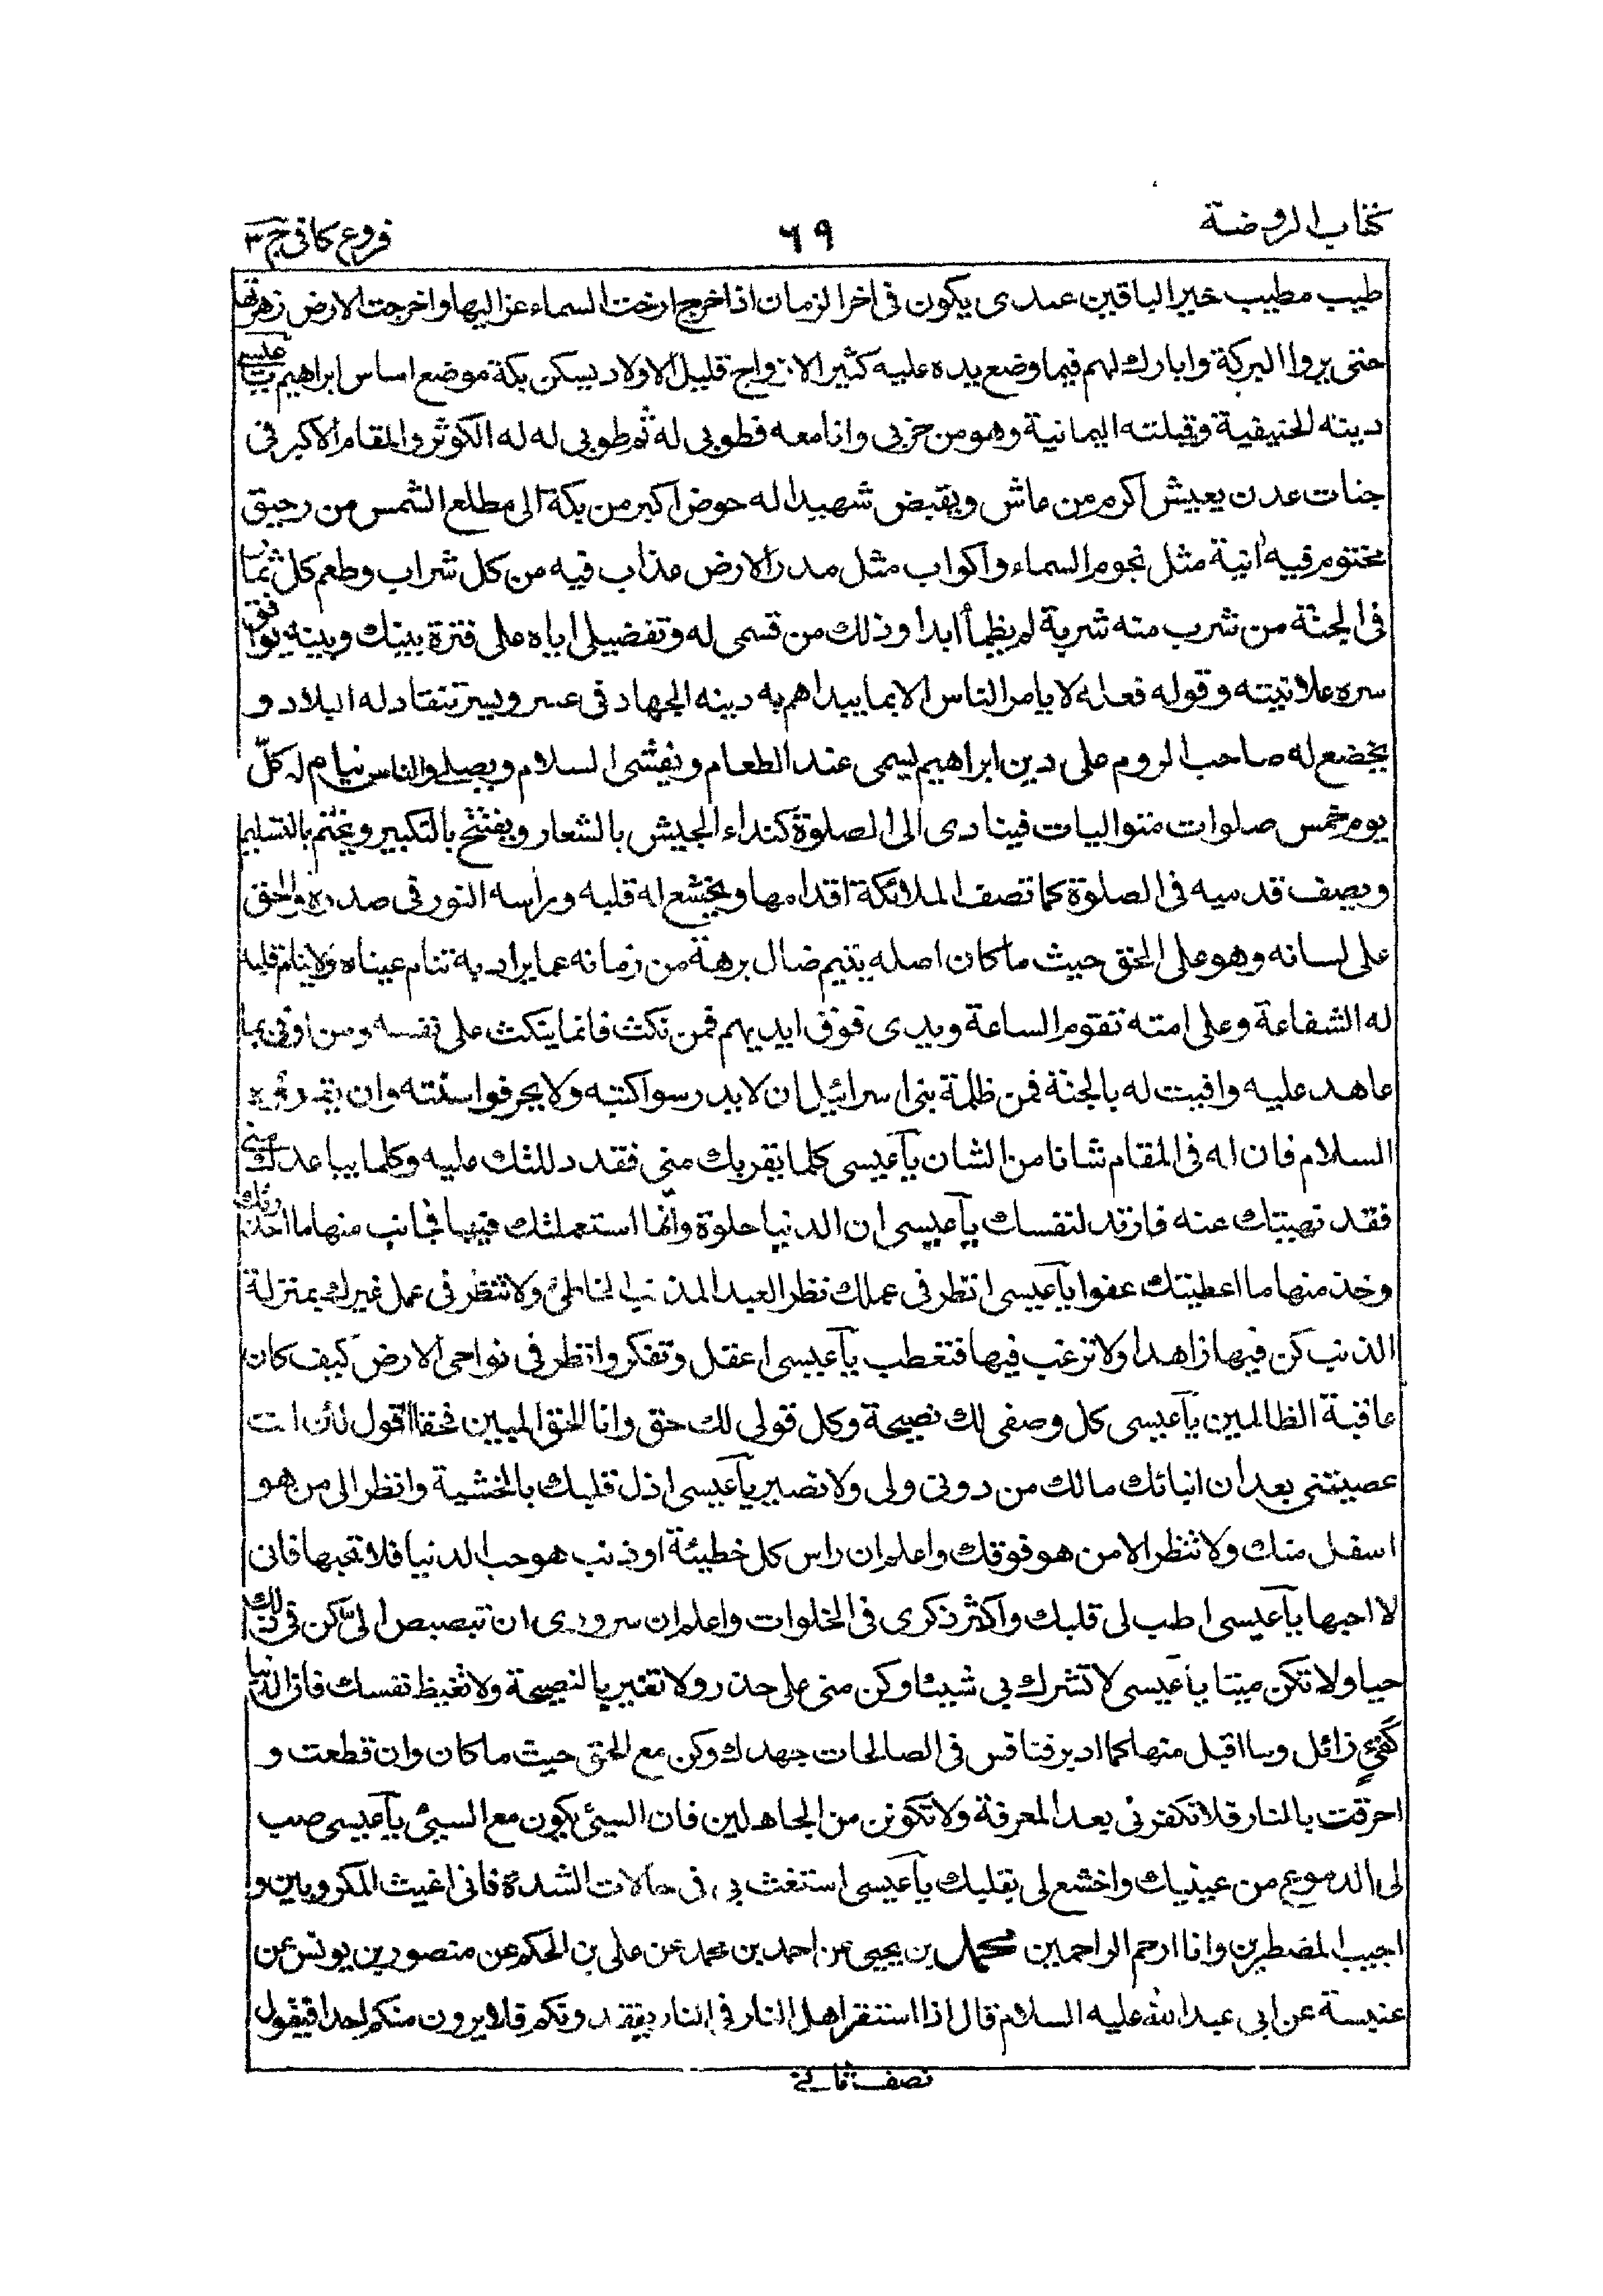 كتاب الروضة
٦٩
فروع كافى ج ٣
طيب مطيب خير الباقين عندى يكون فى اخر الزمان اذا خرج ارخت السماء عزاليها واخرجت الارض زهرتها
حتى يروا البركة وابارك لهم فيما وضع يده عليه كثير الازواج قليل الاولاد يسكن بكة موضع اساس ابراهيم يا عيسى
دينه الحنيفية وقبلته اليمانية وهو من حزبى وانا معه فطوبى له ثم طوبى له له الكوثر والمقام الاكبر فى
جنات عدن يعيش اكرم من عاش ويقبض شهيدا له حوض اكبر من بكة الى مطلع الشمس من رحيق
مختوم فيه انية مثل نجوم السماء واكواب مثل مدر الارض عذاب فيه من كل شراب وطعم كل ثمار
فى الجنة من شرب منه شربة لم يظمأ ابدا وذلك من قسمى له وتفضيلى اياه على فترة بينك وبينه يوافق
سره علانيته وقوله فعله لا يامر الناس الا بما يبداهم به دينه الجهاد فى عسر ويسر تنقاد له البلاد و
يخضع له صاحب الروم على دين ابراهيم يسمى عند الطعام ويفشى السلام ويصلى والناس نيام له كلّ
يوم خمس صلوات متواليات فينادى الى الصلوة كنداء الجيش بالشعار ويفتتح بالتكبير ويختم بالتسليم
ويصف قدميه فى الصلوة كما تصف الملائكة اقدامها ويخشع له قلبه وراسه النور فى صدره والحق
على لسانه وهو على الحق حيث ما كان اصله يتيم ضال برهة من زمانه عما يراد به تنام عيناه ولا ينام قلبه
له الشفاعة وعلى امته تقوم الساعة ويدى فوق ايديهم فمن نكث فانما ينكث على نفسه ومن اوفى بما
عاهد عليه وافيت له بالجنة فمن ظلمة بنى اسرائيل ان لا يدرسوا كتبه ولا يحرفوا سنته وان يقرؤه
السلام فان له فى المقام شانا من الشان يا عيسى كلما يقربك منى فقد دللتك عليه وكلما يباعدك منى
فقد نهيتك عنه فارتد لنفسك يا عيسى ان الدنيا حلوة وانّما استعملتك فيها فجانب منها ما حذرتك
وخذ منها ما اعطيتك عفوا يا عيسى انظر فى عملك نظر العبد المذنب الخاطئ ولا تنظر فى عمل غيرك بمنزلة
الذنب كن فيها زاهدا ولا ترغب فيها فتعطب يا عيسى اعقل وتفكر وانظر فى نواحى الارض كيف كان
عاقبة الظالمين يا عيسى كل وصفى لك نصيحة وكل قولى لك حق وانا الحق المبين فحقا اقول لئن انت
عصيتنى بعد ان انباتك مالك من دونى ولى ولا نصير يا عيسى اذل قلبك بالخشية وانظر الى من هو
اسفل منك ولا تنظر الا من هو فوقك واعلم ان راس كل خطيئة او ذنب هو حب الدنيا فلا تحبها فانى
لا احبها يا عيسى اطب لى قلبك واكثر ذكرى فى الخلوات واعلم ان سرورى ان تبصبص الىّ كن فى ذلك
حيا ولا تكن ميتا يا عيسى لا تشرك بى شيئا وكن منى على حذر ولا تغتر بالنصيحة ولا تغبط نفسك فان الدنيا
كفئ زائل وما اقبل منها كما ادبر فنافس فى الصالحات جهدك وكن مع الحق حيث ما كان وان قطعت و
احرقت بالنار فلا تكفر بى بعد المعرفة ولا تكونن من الجاهلين فان السيئ يكون مع السيئ يا عيسى صب
لى الدموع من عينيك واخشع لى بقلبك يا عيسى استغث بى فى حالات الشدة فانى اغيث المكروبين و
اجيب المضطرين وانا ارحم الراحمين محمد بن يحيى عن احمد بن محمد عن على بن الحكم عن منصور بن يونس عن
عنبسة عن ابى عبد الله عليه السلام قال اذا استقر اهل النار فى النار يفقدونكم فلا يرون منكم احدا فيقول
نصف ثانى